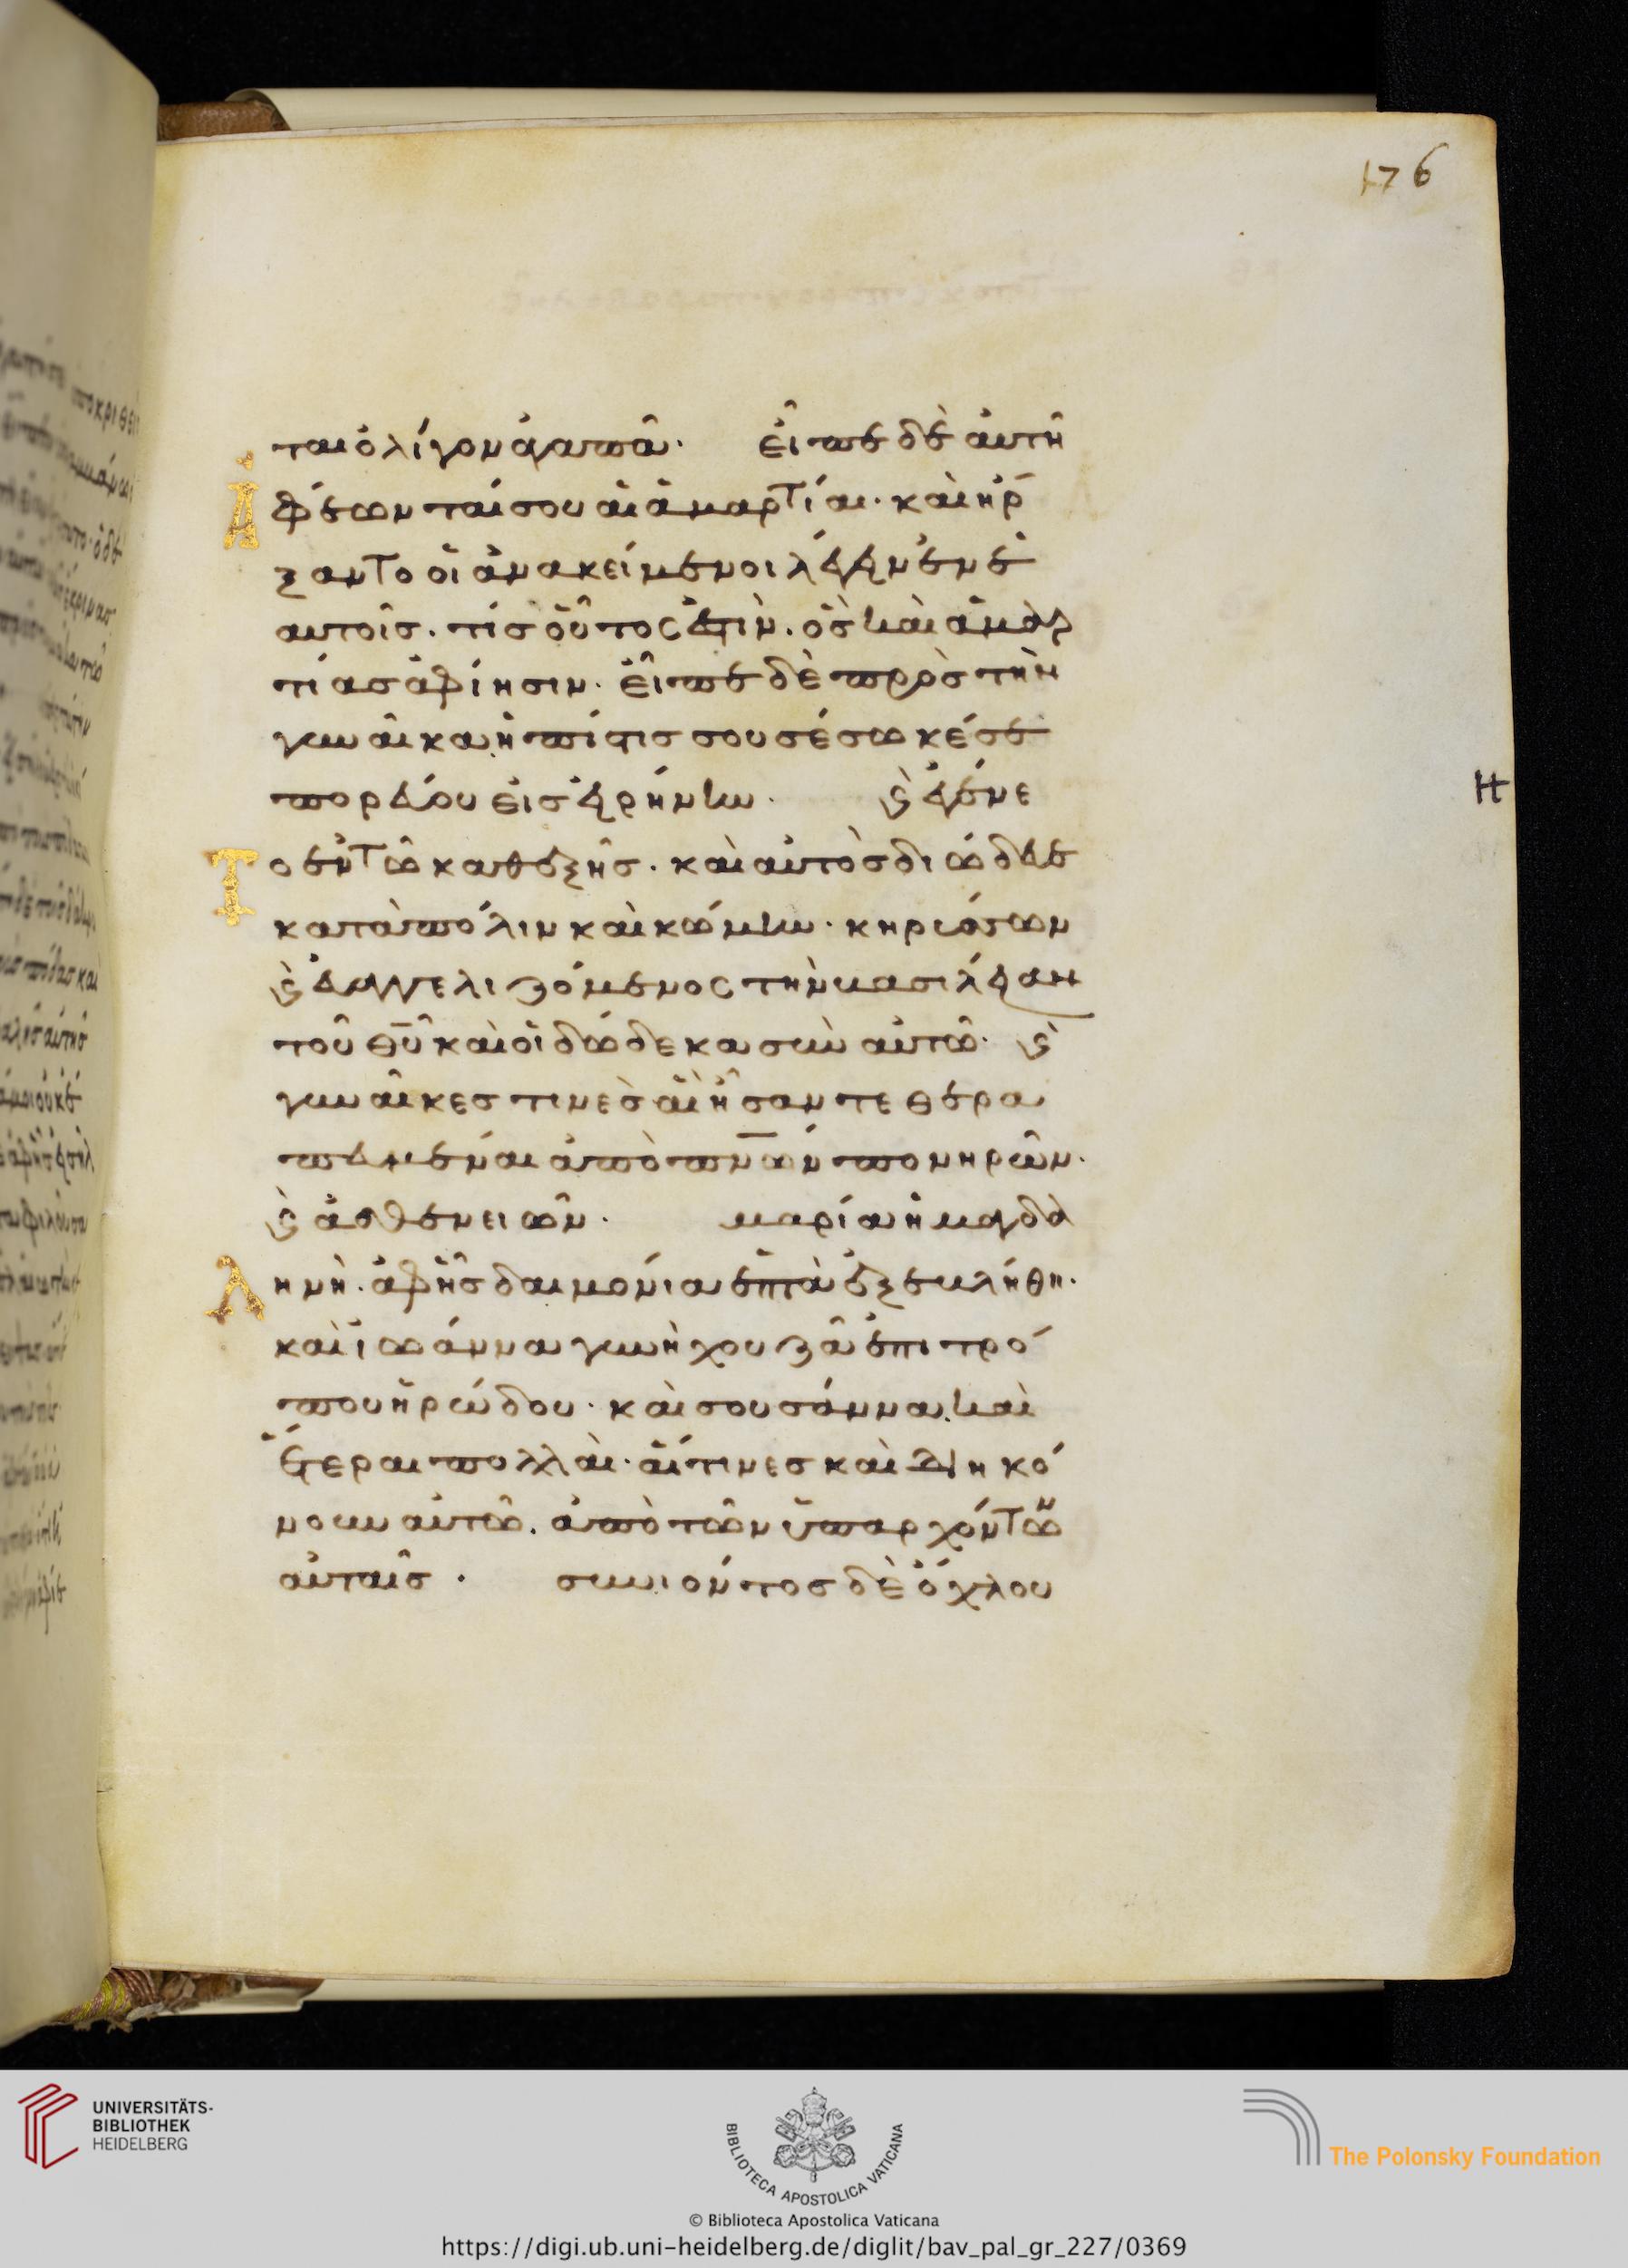 176
ται ὀλίγον ἀγαπᾶ· εἶπε δὲ αὐτῆ
Ἀφέωνταί σου αἱ ἁμαρτίαι· καὶ ἤρ
ξαντο οἱ ἀνακείμενοι λέγειν ἐν ἑ
αυτοῖς· τίς οὗτος ἐστὶν· ὃς καὶ ἁμαρ
τίας ἀφίησιν· εἶπε δὲ πρὸς τὴν
γυναῖκα ἡ πίστις σου σέσωκέ σε
πορεύου εἰς εἰρήνην· ϗ̀ ἐγένε
Το ἐν τῶ καθεξῆς· καὶ αὐτὸς διώδευε
κατὰ πόλιν καὶ κώμην· κηρύσσων
ϗ̀ εὐαγγελιζόμενος τὴν βασιλείαν
τοῦ θῡ καὶ οἱ δώδεκα σὺν αὐτῶ· ϗ̀
γυναῖκες τινὲς αἳ ἦσαν τεθερα
πευμέναι ἀπὸ πν̅ων πονηρῶν·
ϗ̀ ἀσθενειῶν· μαρία ἡ μαγδα
Ληνὴ· ἀφ ἧς δαιμόνια ἑπτὰ ἐξεβλήθη·
καὶ ἰωάννα γυνὴ χουζᾶ ἐπιτρό
που ἡρώδου· καὶ σουσάννα καὶ
ἕτεραι πολλαὶ· αἵτινες καὶ διηκό
νουν αὐτῶ· ἀπὸ τῶν ὑπαρχόντων
αὐταῖς· συνιόντος δὲ ὄχλου
H
UNIVERSITÄTS-
BIBLIOTHEK
HEIDELBERG
BIBLIOTECA APOSTOLICA VATICANA
The Polonsky Foundation
© Biblioteca Apostolica Vaticana
https://digi.ub.uni-heidelberg.de/diglit/bav_pal_gr_227/0369